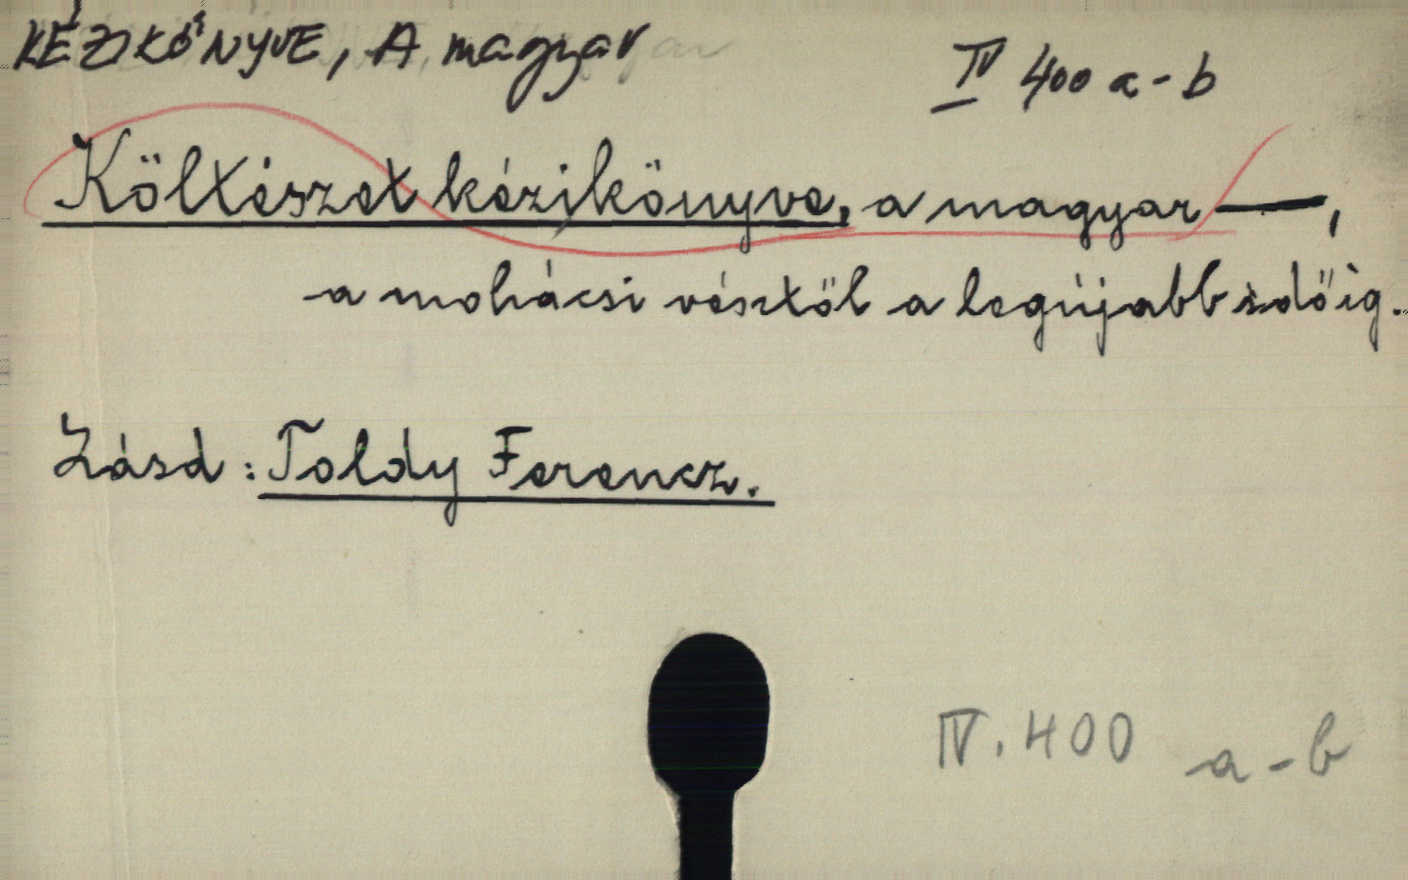 KÉZIKÖNYVE, A magyar
IV 400 a-b
Költészet kézikönyve, a magyar —,
a mohácsi vésztől a legújabb időig.
Lásd: Toldy Ferencz.
IV. 400 a-b